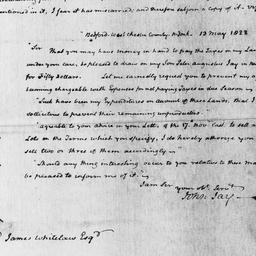 mentioned in it, I fear it has miscarried, and therefore subjoin a copy of it.
"Bedford West Chester County N.York. 13 May 1822
"Sir
That you may have money in hand to pay the Taxes on my Lands
under your care, be pleased to draw on my Son Peter Augustus Jay in New
for Fifty Dollars. Let me earnestly request you to prevent my
becoming chargeable with Expences for not paying Taxes in due Season
"Such have been my Expenditures on account of these Lands, that I
solicitous to prevent their remaining unproductive.
"agreable to your advice in your Letter of the 17. Novr. last to sell
Lots on the Terms which you specify, I do hereby authorize you
sell two or three of them accordingly."
"Should any thing interesting occur to you relative to these
be pleased to inform me of it."
I am Sir
your Ob. Servt.
John Jay.
James Whitelaw Esqr.